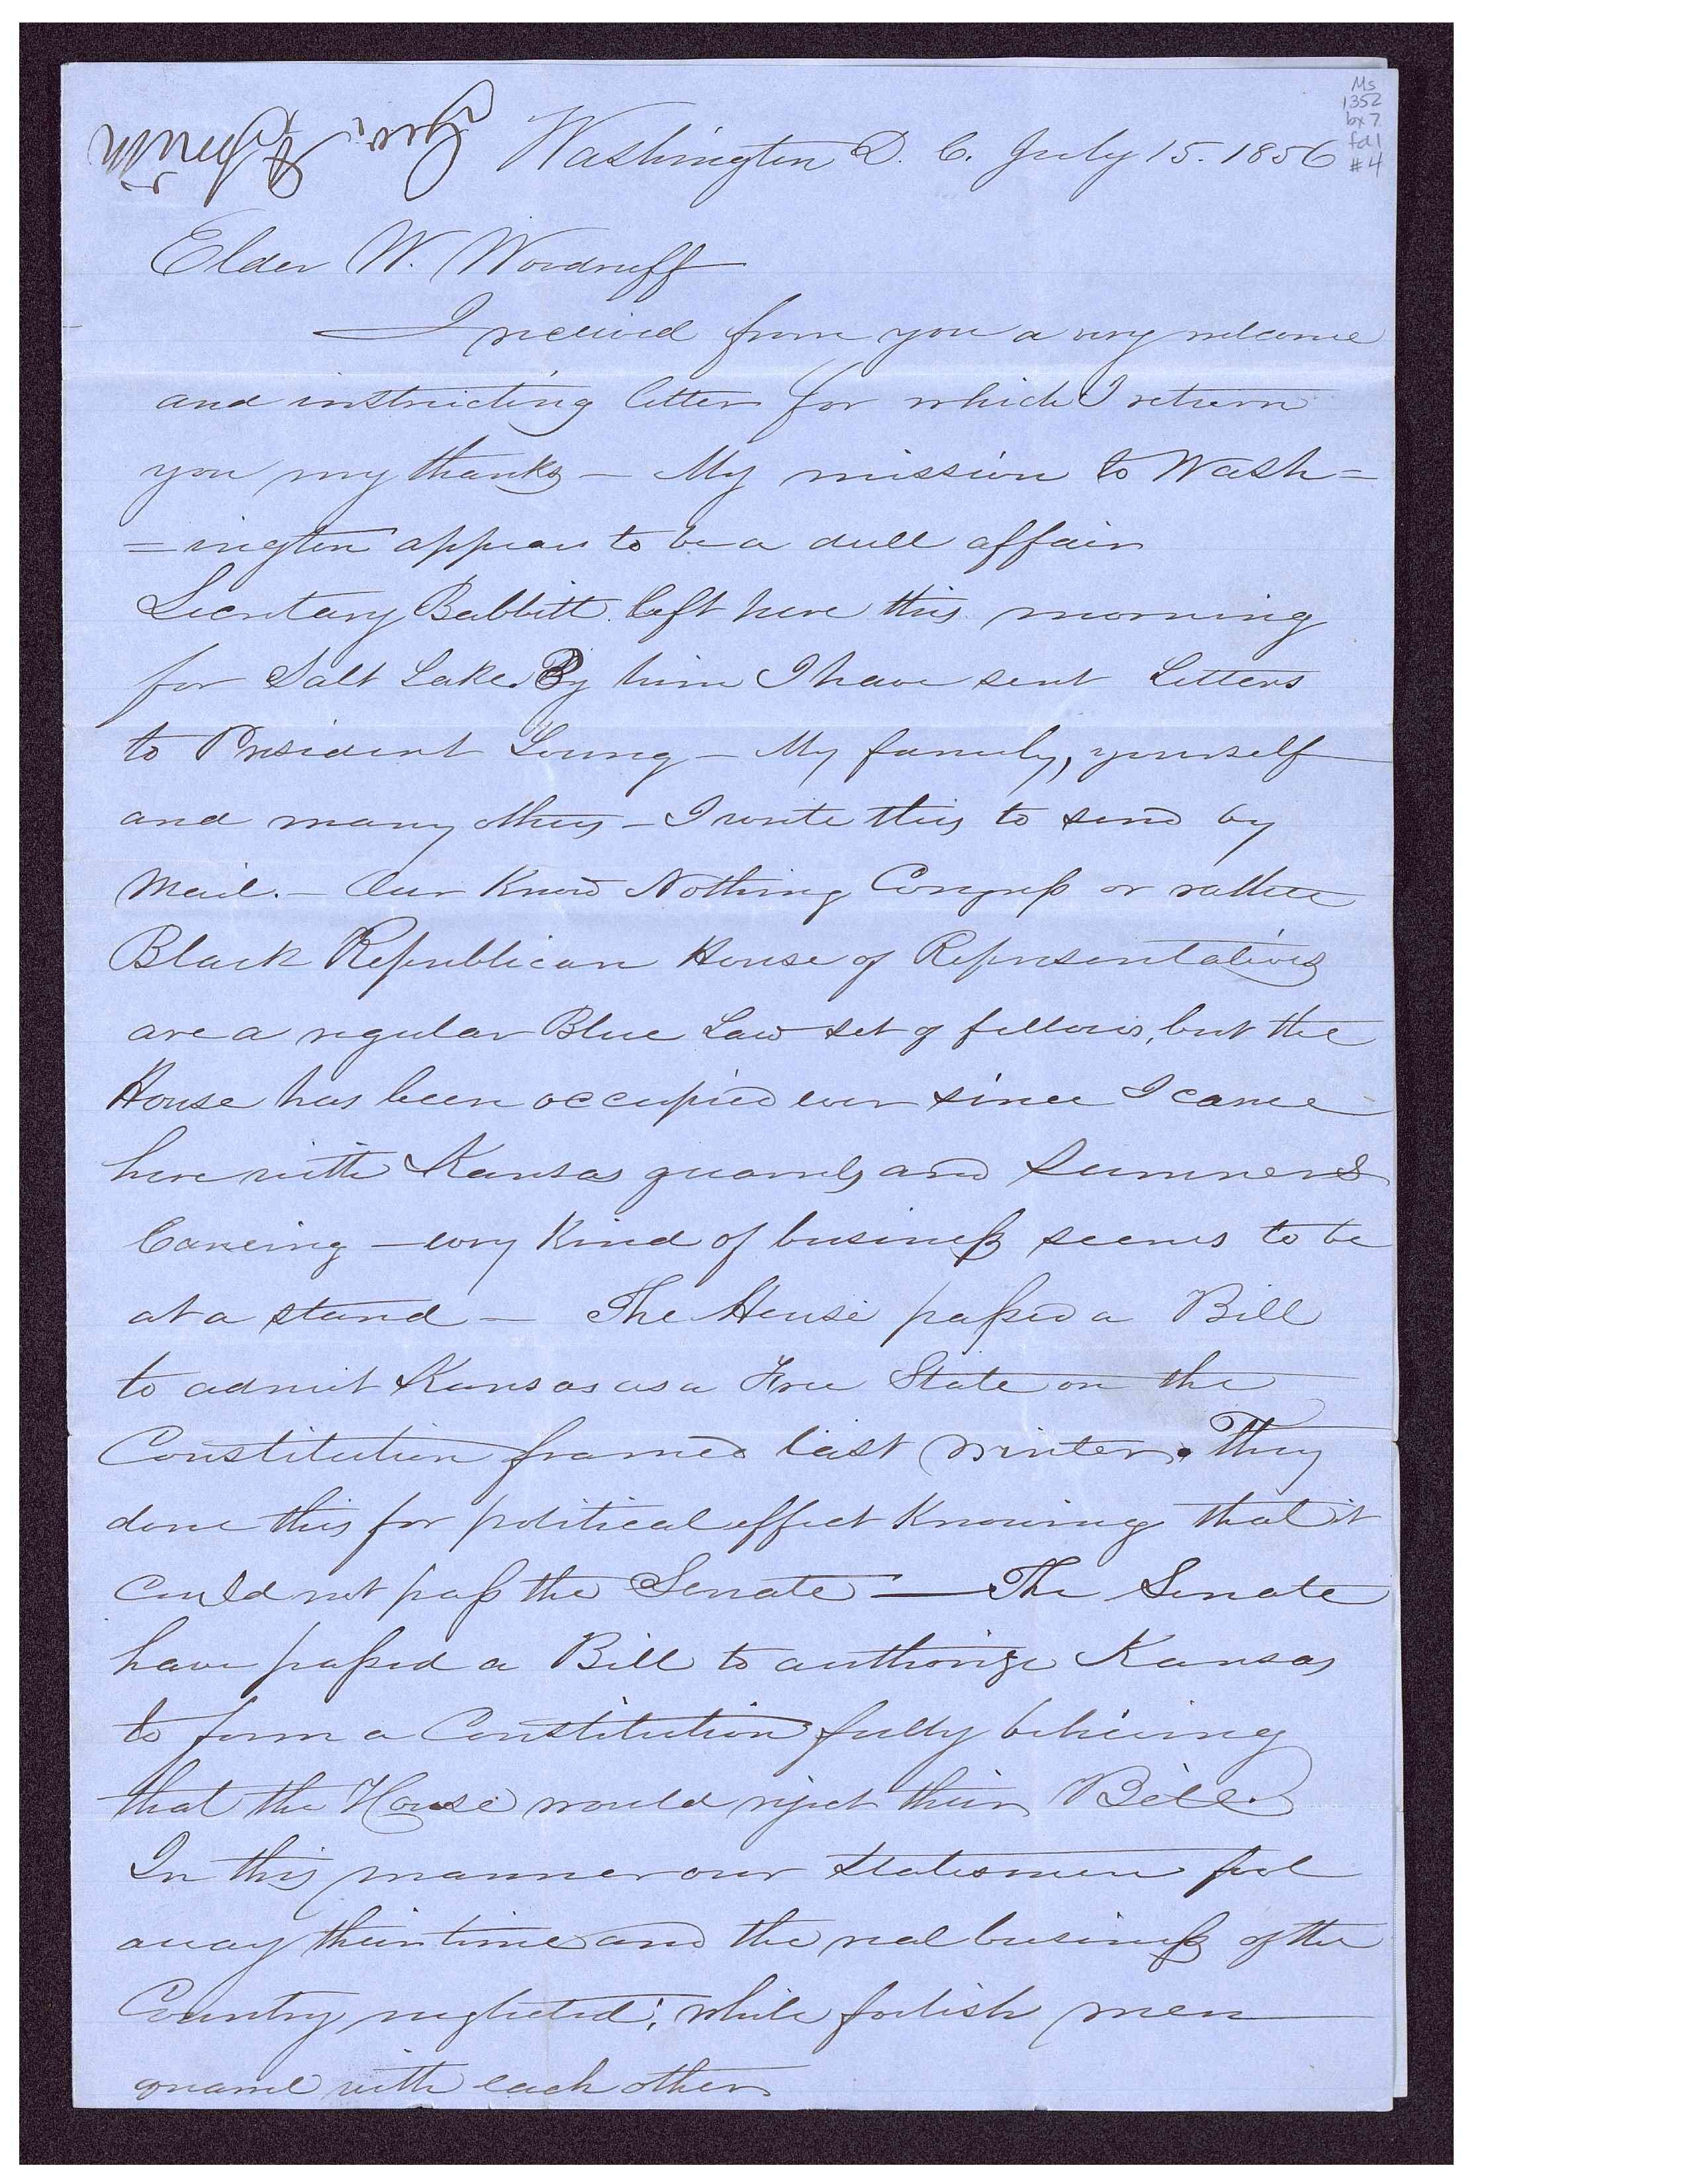 Geo. A. Smith
Washington D. C. July 15. 1856
Ms
1352
bx 7
fd 1
#4
Elder W. Woodruff
I received from you a very welcome
and instructing letter for which I return
you my thanks – My mission to Wash=
=ington appears to be a dull affair
Secretary Babbitt left here this morning
for Salt Lake. By him I have sent Letters
to President Young – My family, yourself
and many others – I write this to send by
Mail. – Our Know Nothing Congress or rather
Black Republican House of Representatives
are a regular Blue Law set of fellows, but the
House has been occupied ever since I came
here with Kansas quarrels and Sumners
Caneing – every Kind of business seems to be
at a stand – The House passed a Bill
to admit Kansas as a Free State on the
Constitution framed last winter. They
done this for political effect Knowing that it
could not pass the Senate – The Senate
have passed a Bill to authorize Kansas
to form a Constitution fully believing
that the House would reject their Bill.
In this manner our Statesmen fool
away their time and the real business of the
Country neglected; while foolish men
quarrel with each other